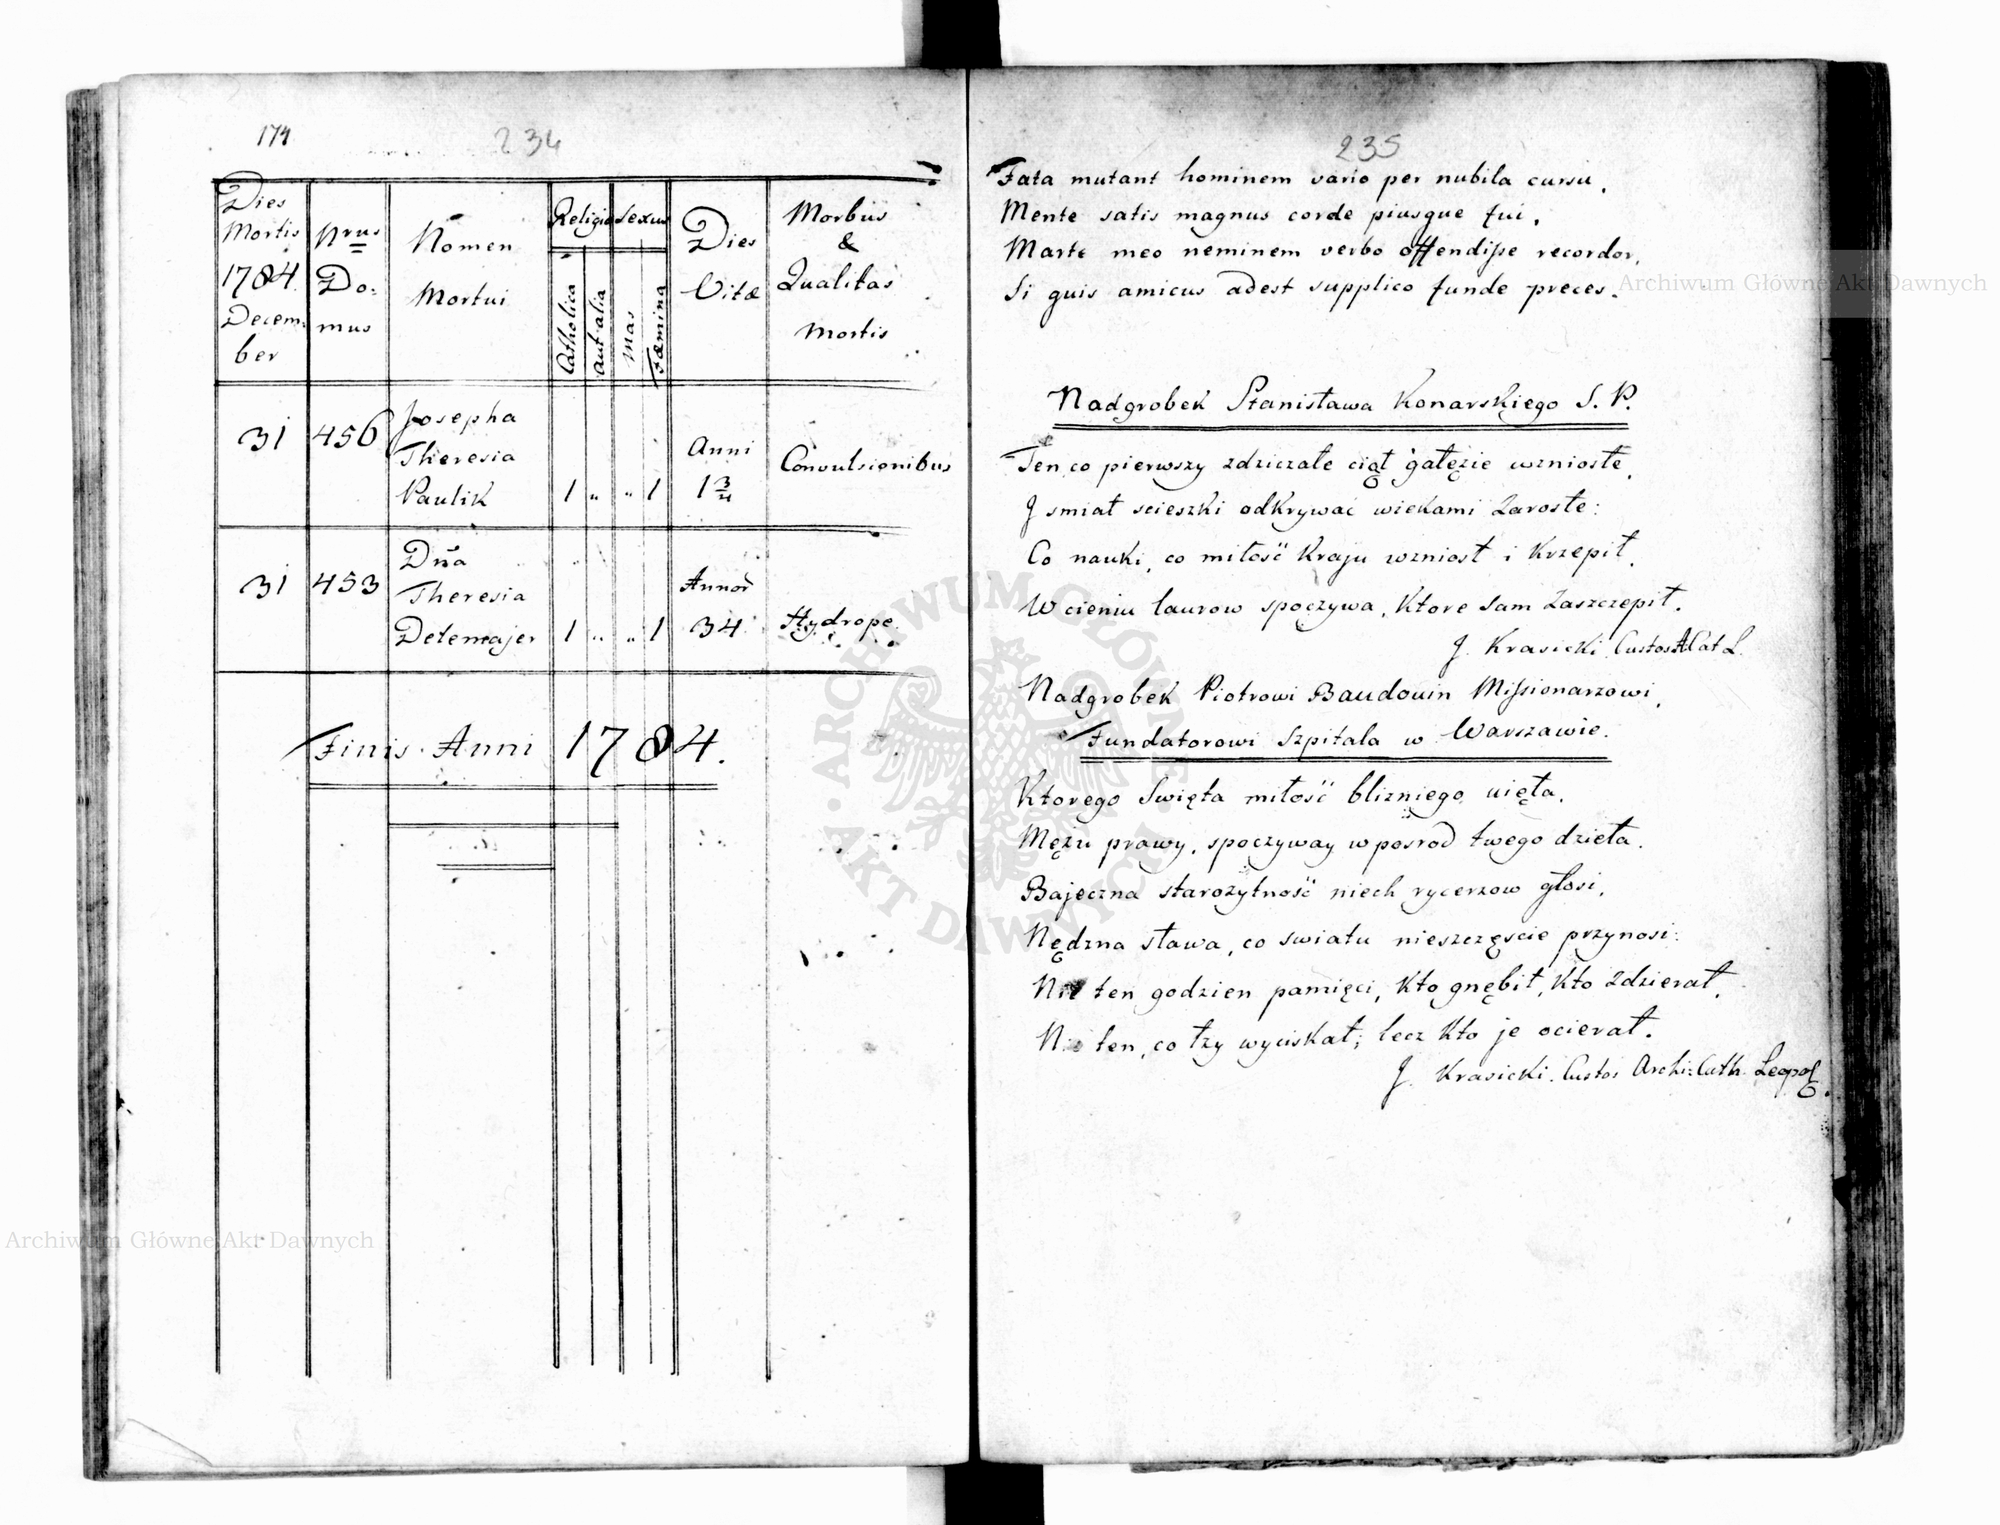 174
234
Dies
Mortis
1784.
Decem:
ber
Nrus
Do:
mus
Nomen
Mortui
Religio
Catholica
aut alia
Sexus
Mas
Fæmina
Dies
Vitæ
Morbus
&
Qualitas
Mortis
31 456 Josepha
Theresia Anni Convulsionibus
Paulik 1 " " 1 1 3/4
31 453 Dña
Theresia Annor
Detemajer 1 " " 1 34. Hydrope.
Finis Anni 1784.
235
Fata mutant hominem vario per nubila cursu,
Mente satis magnus corde piusque fui,
Marte meo neminem verbo offendisse recordor,
Si quis amicus adest supplico funde preces.
Nadgrobek Stanisława Konarskiego S. P.
Ten, co pierwszy zdziczałe ciął gałęzie wzniosłe,
J smiał scieszki odkrywać wiekami zarosłe:
Co nauki, co miłość kraju wzniosł i krzepił,
W cieniu laurow spoczywa, ktore sam zaszczepił.
J. Krasicki Custos A Cat L.
Nadgrobek Piotrowi Baudouin Missionarzowi,
Fundatorowi Szpitala w Warszawie.
Ktorego Swięta miłość blizniego uięła,
Mężu prawy, spoczyway w posrod twego dzieła.
Bajeczna starożytność niech rycerzow głosi,
Nędzna sława, co swiatu nieszczęscie przynosi:
Nie ten godzien pamięci, kto gnębił, kto zdzierał,
Nie ten, co łzy wyciskał; lecz kto je ocierał.
J. Krasicki. Custos Archi: Cath. Leopol.
Archiwum Główne Akt Dawnych
Archiwum Główne Akt Dawnych
· ARCHIWUM GŁÓWNE · AKT DAWNYCH